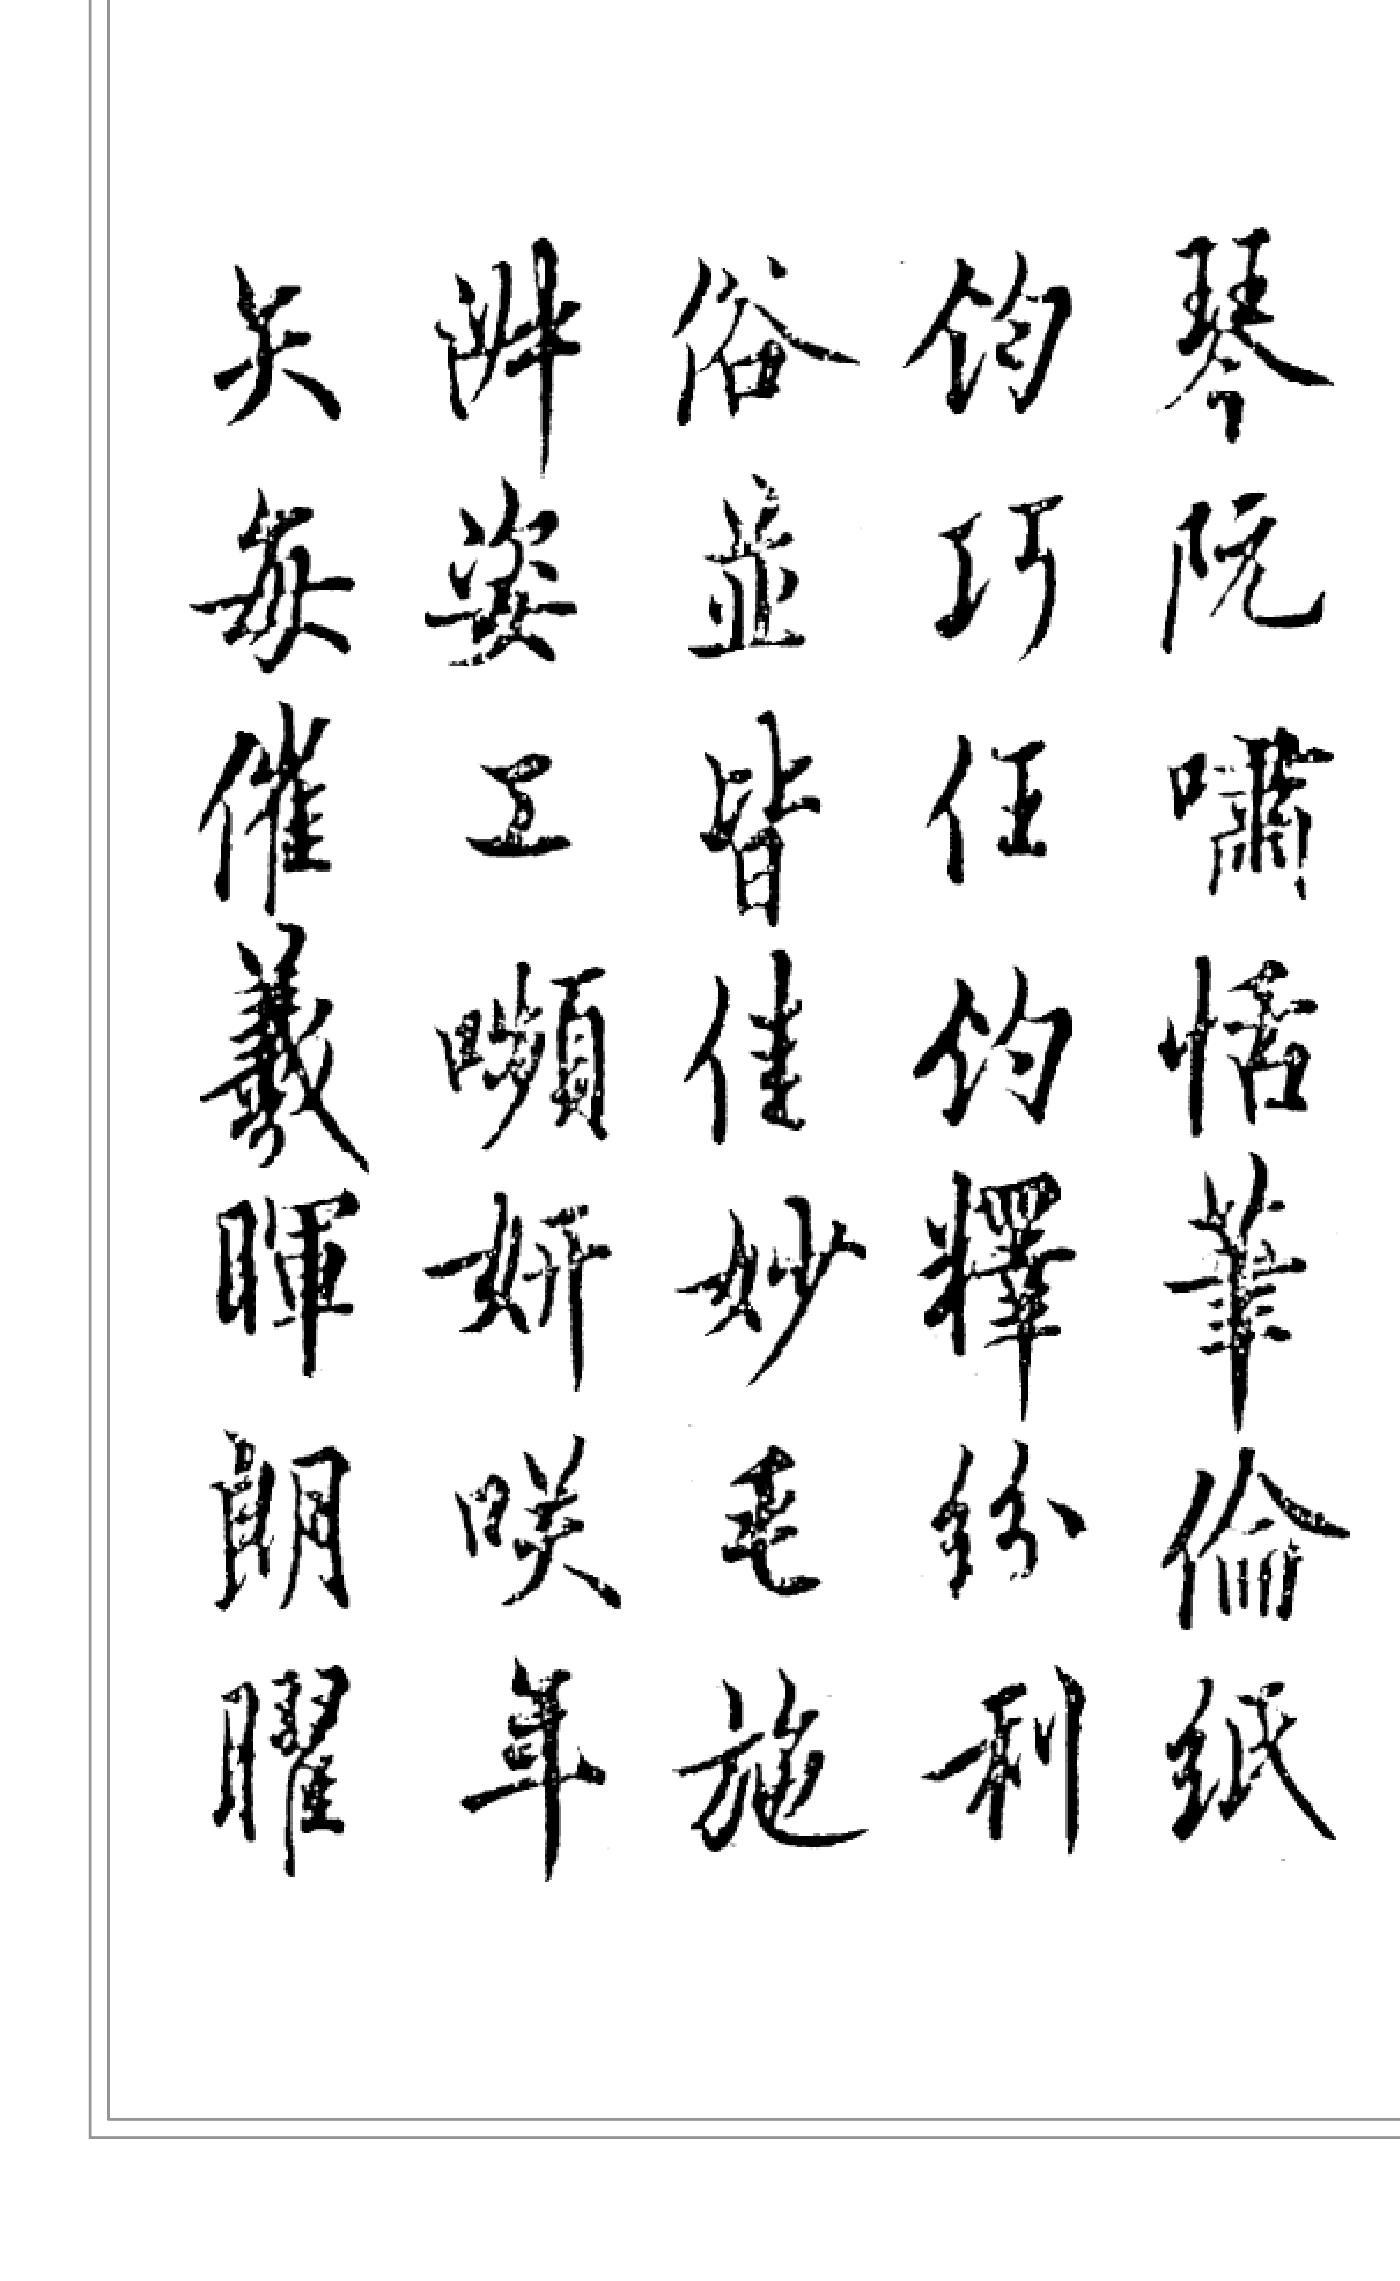 琴阮嘯恬筆倫紙
鈞巧任釣釋紛利
俗並皆佳妙毛施
淑姿工嚬妍咲年
矢每催羲暉朗曜